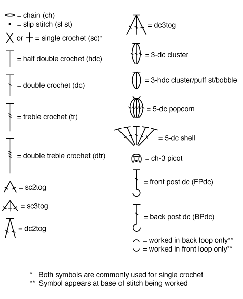 = chain (ch)
= slip stitch (sl st)
or = single crochet (sc)*
= half double crochet (hdc)
= double crochet (dc)
= treble crochet (tr)
= double treble crochet (dtr)
= sc2tog
= sc3tog
= dc2tog
= dc3tog
= 3-dc cluster
= 3-hdc cluster/puff st/bobble
= 5-dc popcorn
= 5-dc shell
= ch-3 picot
= front post dc (FPdc)
= back post dc (BPdc)
= worked in back loop only**
= worked in front loop only**
* Both symbols are commonly used for single crochet
** Symbol appears at base of stitch being worked